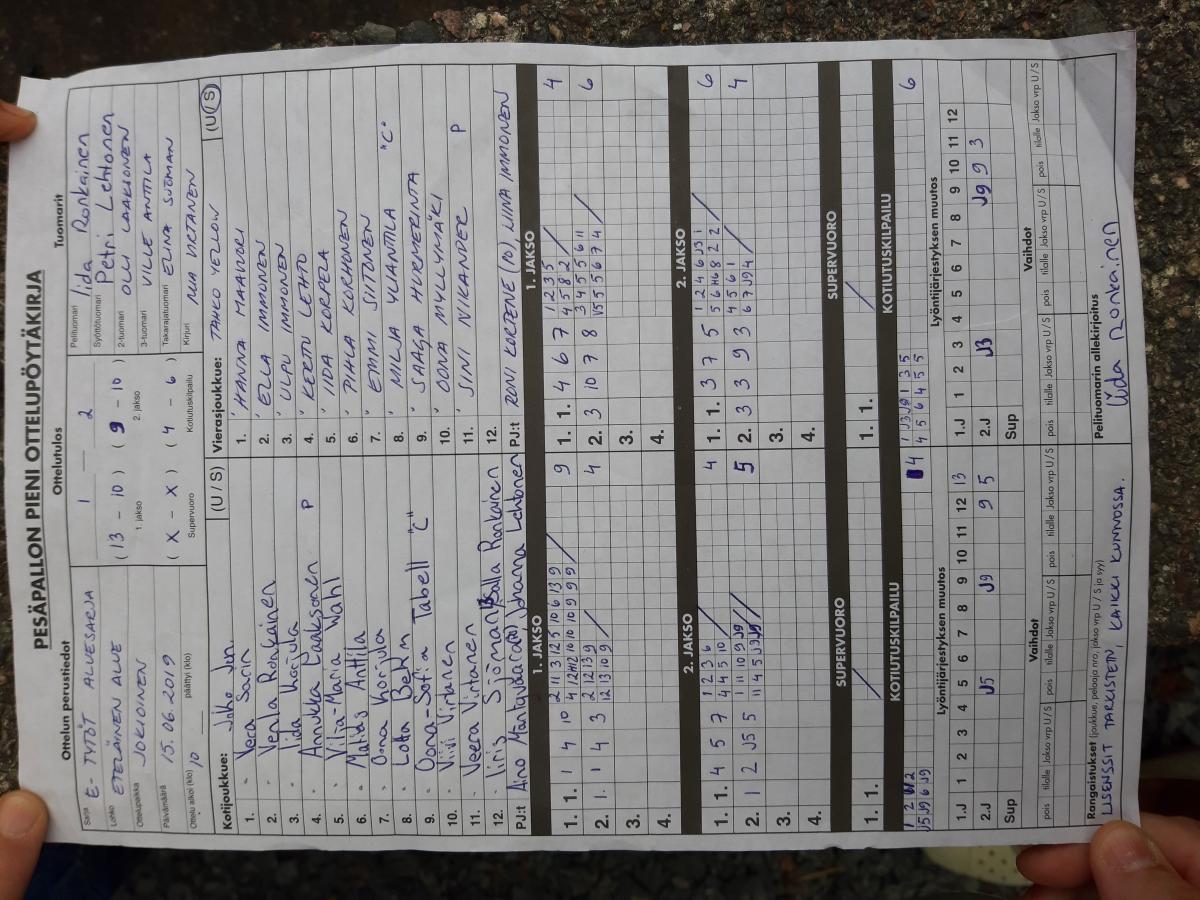 PESÄPALLON PIENI OTTELUPÖYTÄKIRJA
Ottelun perustiedot
Ottelutulos
Tuomarit
Sarja E-TYTÖT ALUESARJA
Lohko ETELÄINEN ALUE
Ottelupaikka JOKIOINEN
Päivämäärä 15.06.2019
Ottelu alkoi (klo) 10 päättyi (klo)
1 — 2
(13 - 10) (9 - 10)
1. jakso 2. jakso
(X - X) (4 - 6)
Supervuoro Kotiutuskilpailu
Pelituomari Iida Ronkainen
Syöttötuomari Petri Lehtonen
2-tuomari OLLI LAAKIONEN
3-tuomari VILLE ANTTILA
Takarajatuomari ELINA SJÖMAN
Kirjuri NIINA VIRTANEN
Kotijoukkue: (U / S)
1. Vera Sarin
2. Venla Ronkainen
3. Iida Korjula
4. Annukka Laaksonen P
5. Vilja-Maria Wahl
6. Matilda Anttila
7. Oona Korjula
8. Lotta Behm
9. Oona-Sofia Tabell "C"
10. Viivi Virtanen
11. Veera Virtanen
12. Iiris Sjöman Salla Ronkainen
PJ:t Johanna Lehtonen
Vierasjoukkue: TAHKO YELLOW (U / S)
1. HANNA MAAVUORI
2. ELLA IMMONEN
3. ULPU IMMONEN
4. KERTTU LEHTO
5. IIDA KORPELA
6. PIHLA KORHONEN
7. EMMI SIITONEN
8. MILJA YLANTILA "C"
9. SAAGA HURMERINTA
10. OONA MYLLYMÄKI
11. SINI NIKANDER P
12.
PJ:t RONI KORTENE (10), LIINA IMMONEN
1. JAKSO
1. JAKSO
1. 1. 1 4 10 2 11 3 12 5 10 6 13 9 9
2. 1. 1 4 3 2 12 13 9 4
12 13 10 9
3.
4.
1. 1. 4 6 7 1 2 3 5 4
4 5 8 2
2. 3 10 7 8 3 4 5 5 6 11 6
3.
4.
2. JAKSO
2. JAKSO
1. 1. 4 5 7 1 2 3 6 4
4 4 5 10
2. 1 2 J5 5 1 11 10 9 J9 5
3.
4.
1. 1. 3 7 5 1 2 4 6 J5 1 6
2. 3 3 9 3 4 5 6 1 4
6 7 J9 4
3.
4.
SUPERVUORO
SUPERVUORO
1. 1.
1. 1.
KOTIUTUSKILPAILU
KOTIUTUSKILPAILU
J5 J9 6 J9
4
1 J3 J9 1 3 5
4 5 6 4 5 5
6
Lyöntijärjestyksen muutos
Lyöntijärjestyksen muutos
1.J 1 2 3 4 5 6 7 8 9 10 11 12 13
2.J J5 J9 9 5
Sup
1.J 1 2 3 4 5 6 7 8 9 10 11 12
2.J J3 J9 9 3
Sup
Vaihdot
Vaihdot
pois tilalle Jakso vrp U / S pois tilalle Jakso vrp U / S
pois tilalle Jakso vrp U / S pois tilalle Jakso vrp U / S
Rangaistukset (joukkue, pelaaja nro, jakso vrp U / S ja syy)
LISENSSIT TARKISTETTU, KAIKKI KUNNOSSA.
Pelituomarin allekirjoitus
Iida Ronkainen